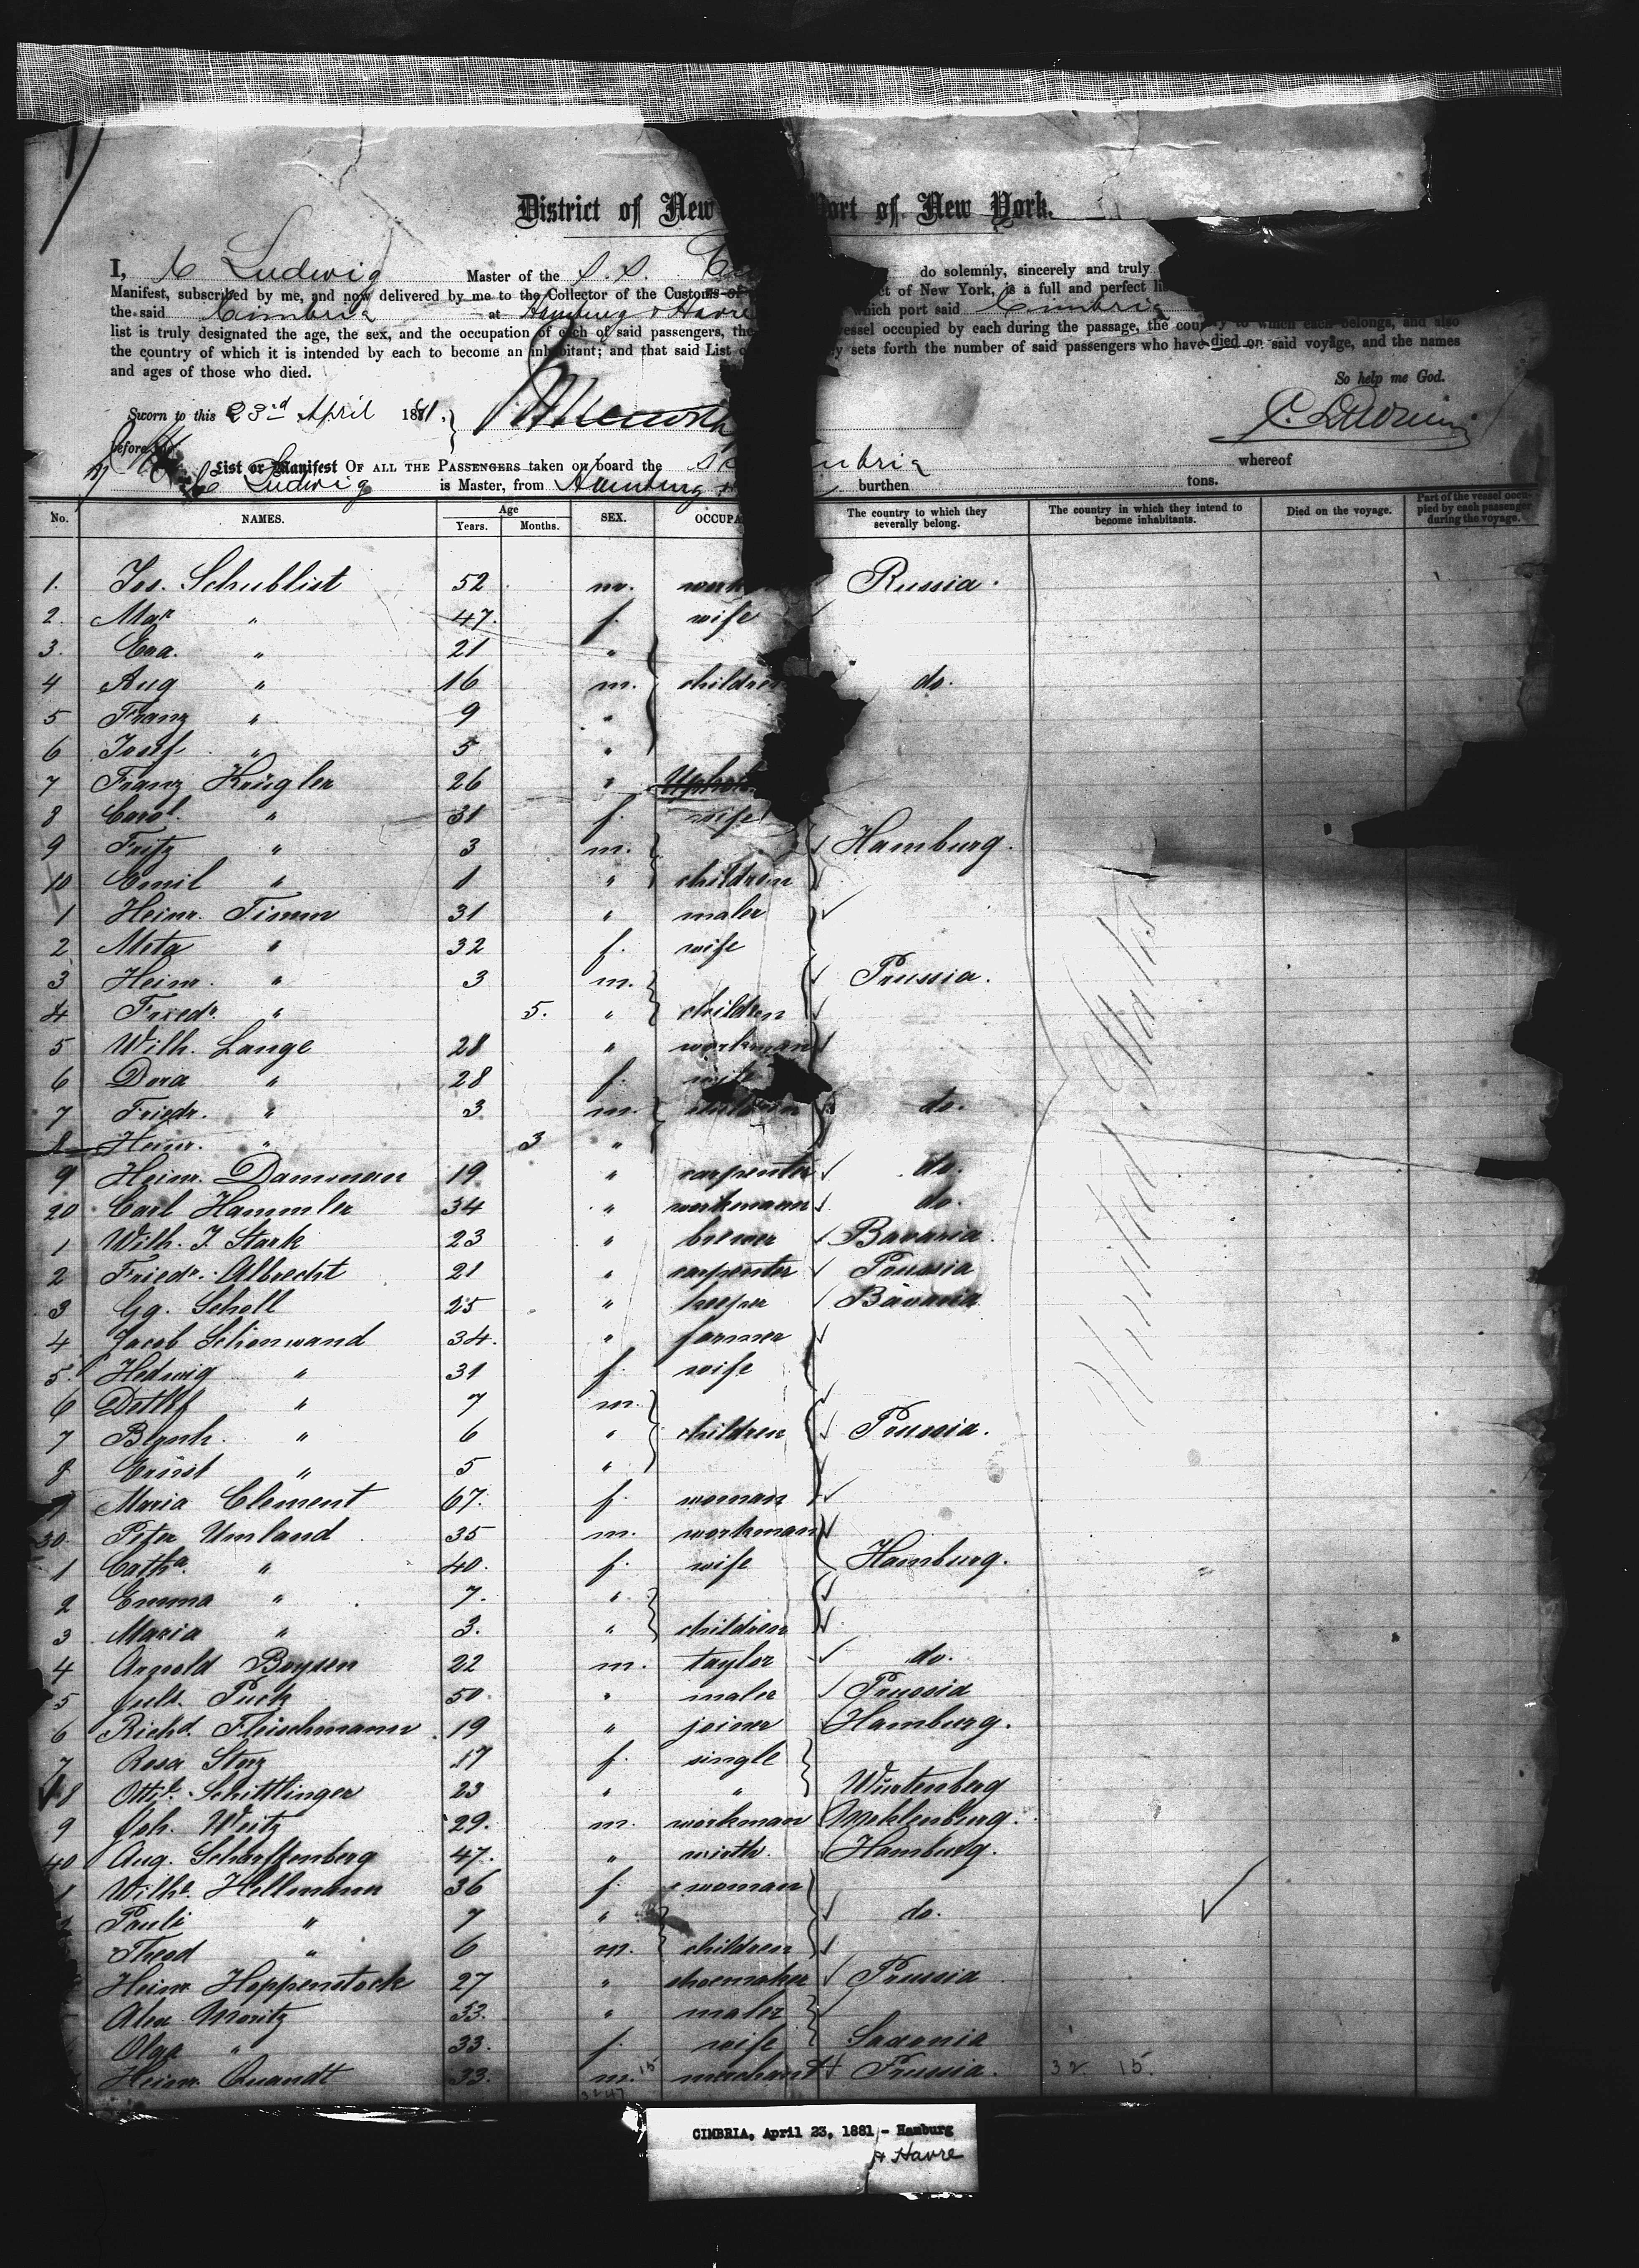 District of New ort of New York.
I, C Ludwig Master of the S. S. do solemnly, sincerely and truly
Manifest, subscribed by me, and now delivered by me to the Collector of the Customs of ct of New York, is a full and perfect li
the said Cimbria at Hamburg & Havre which port said Cimbria
list is truly designated the age, the sex, and the occupation of each of said passengers, the vessel occupied by each during the passage, the country to which each belongs, and also
the country of which it is intended by each to become an inhabitant; and that said List y sets forth the number of said passengers who have died on said voyage, and the names
and ages of those who died.
So help me God.
Sworn to this 23rd April 1881.
before me
List or Manifest OF ALL THE PASSENGERS taken on board the SS mbria whereof
C Ludwig is Master, from Hamburg burthen tons.
No. NAMES. Age Years. Months. SEX. OCCUPA The country to which they severally belong. The country in which they intend to become inhabitants. Died on the voyage. Part of the vessel occupied by each passenger during the voyage.
1. Jos. Schublist 52 m. work Russia.
2. Mar " 47. f. wife
3. Eva. " 21 "
4 Aug " 16 m. children do.
5 Franz " 9 "
6 Josef " 5 "
7 Franz Krügler 26 " Uphol
8 Carol. " 31 f. wife
9 Fritz " 3 m. Hamburg.
10 Emil " 1 " children
1 Heinr. Timm 31 " maler
2 Meta " 32 f. wife
3 Heinr. " 3 m. Prussia.
4 Friedr. " 5. " children
5 Wilh. Lange 28 " workman
6 Dora " 28 f. wife
7 Friedr. " 3 m. children do.
8 Heinr. " 3 "
9 Heinr. Damman 19 " carpenter do.
20 Carl Hammler 34 " workmann do.
1 Wilh. J. Stark 23 " brewer Bavaria.
2 Friedr. Albrecht 21 " carpenter Prussia
3 Gg. Scholl 25 " Bavaria
4 Jacob Schönwand 34. " farmer
5. Hedwig " 31 f. wife
6 Detlef " 7 m.
7 " 6 " children Prussia.
8 Ernst " 5 "
9 Maria Clement 67. f. woman
30. Peter Umland 35 m. workman
1 Catha. " 40. f. wife Hamburg.
2 Emma " 7. "
3 Maria " 3. " children
4 Arnold Boysen 22 m. taylor do.
5 Juls. Puck 50 " maler Prussia
6 Richd. Fleischmann 19 " joiner Hamburg.
7 Rosa Storz 17 f. single
8 Ottil. Schittlinger 23 " " Würtenberg
9 Joh. Weitz 29. m. workman Meklenburg.
40 Aug. Scharffenberg 47. " wirth. Hamburg.
1 Wilhe. Hellmann 36 f. woman
2 Pauli " 7 " do.
Theod " 6 m. children
Heinr. Hoppenstock 27 " shoemaker Prussia
Alex Moritz 33. " maler
Olga " 33. f. wife Saxonia
Heinr. Quandt 33. m. 15 merchant Prussia. 32 15.
United States
CIMBRIA, April 23, 1881,- Hamburg
& Havre